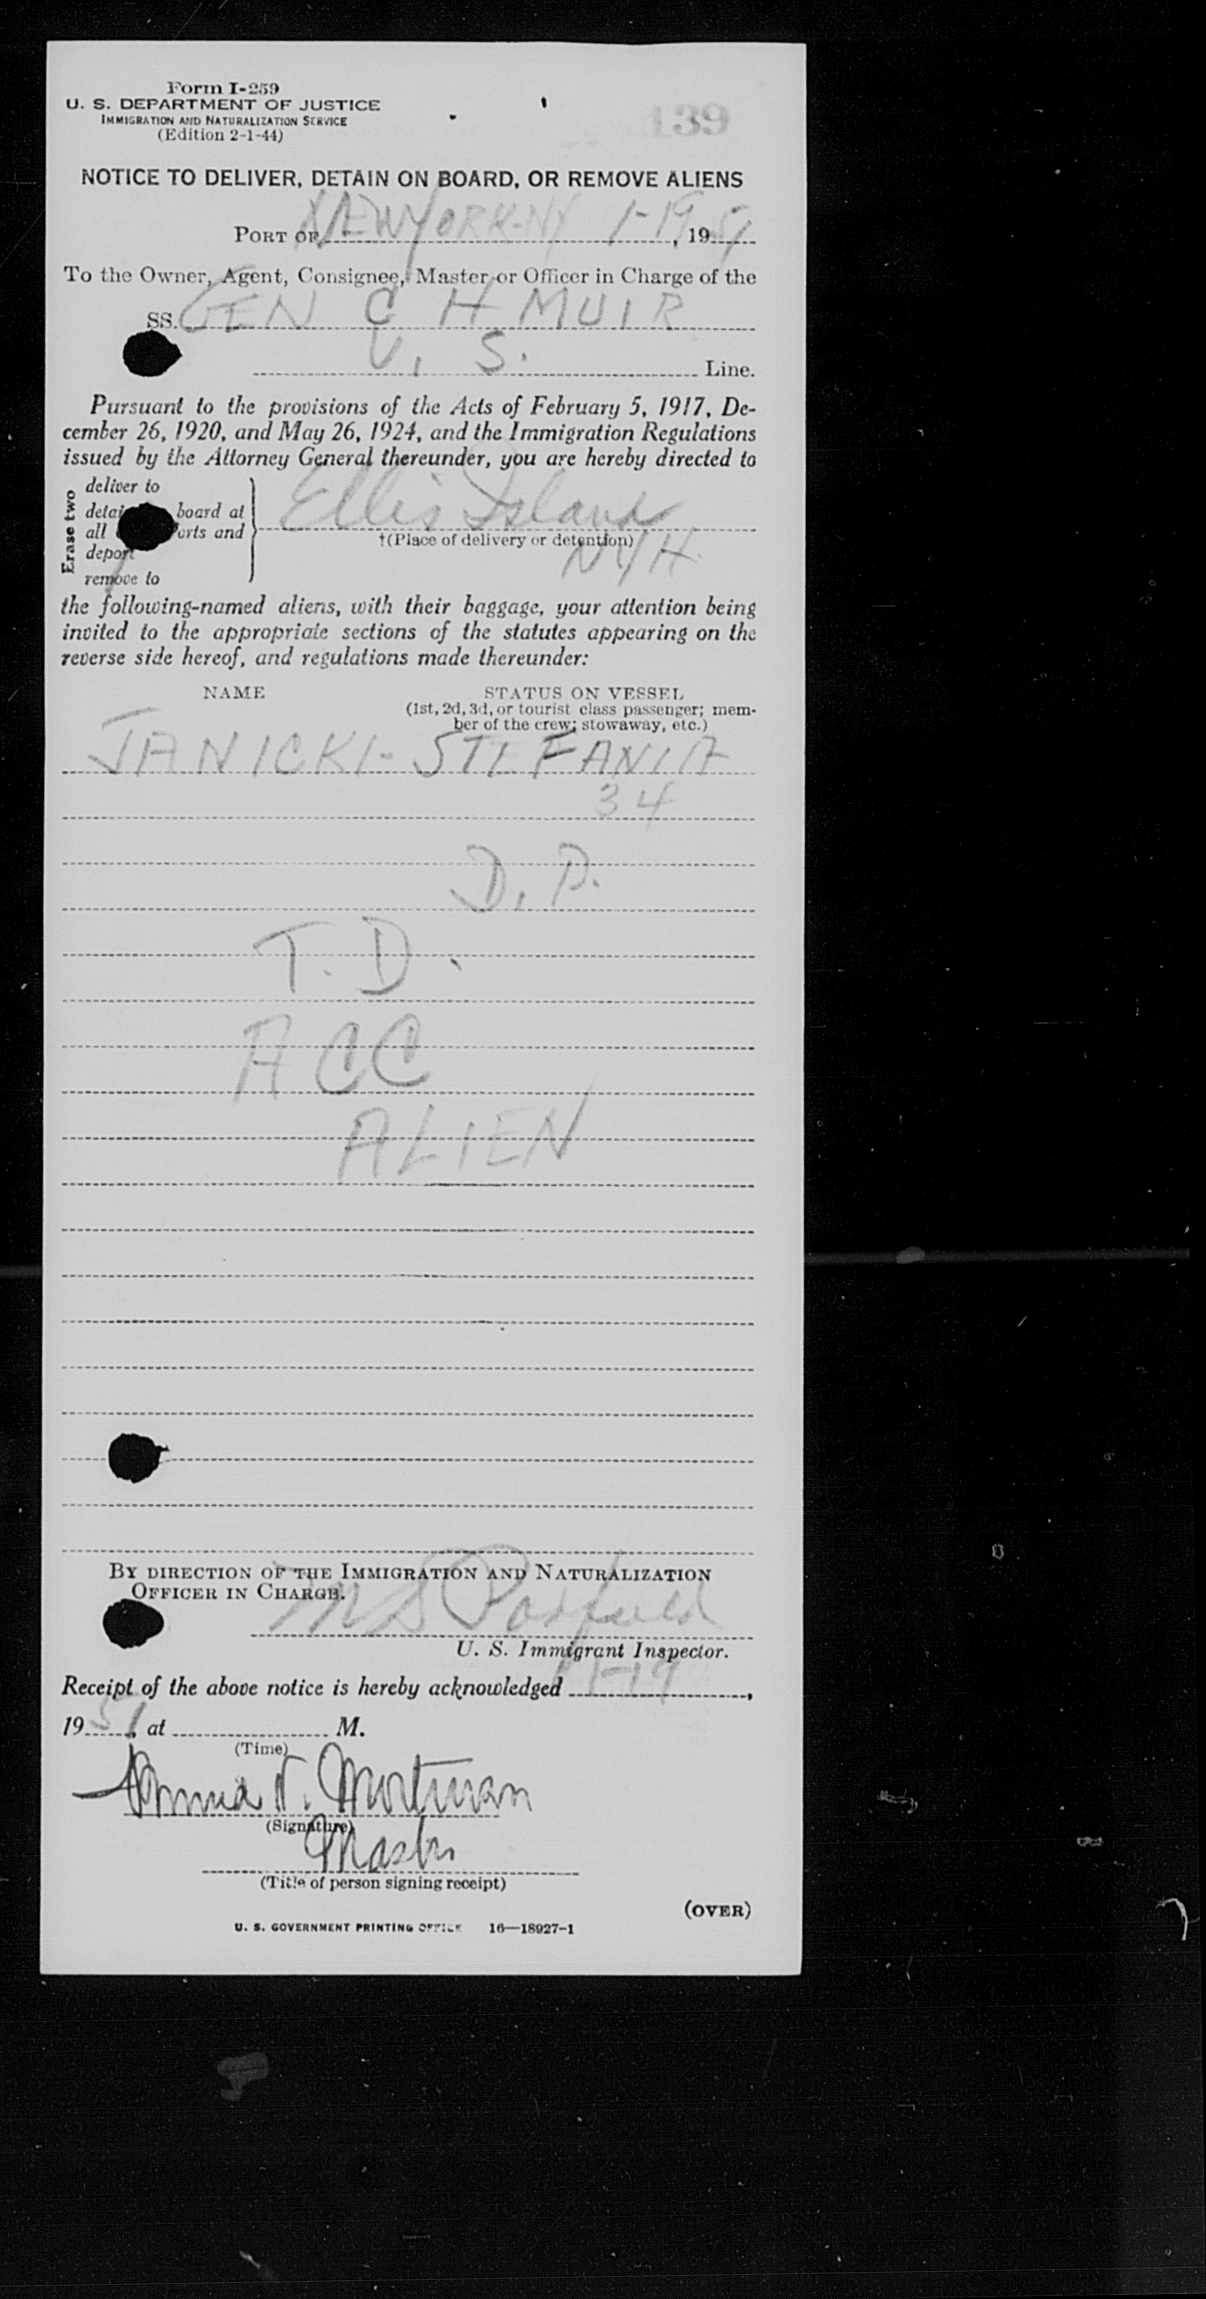 Form I-259
U. S. DEPARTMENT OF JUSTICE
IMMIGRATION AND NATURALIZATION SERVICE
(Edition 2-1-44)
139
NOTICE TO DELIVER, DETAIN ON BOARD, OR REMOVE ALIENS
PORT OF NEW YORK-NY 1-19, 1951
To the Owner, Agent, Consignee, Master or Officer in Charge of the
SS. GEN C H MUIR
U. S. Line.
Pursuant to the provisions of the Acts of February 5, 1917, De-
cember 26, 1920, and May 26, 1924, and the Immigration Regulations
issued by the Attorney General thereunder, you are hereby directed to
Erase two
deliver to
board at
all ports and
deport
remove to
Ellis Island
†(Place of delivery or detention)
NYH.
the following-named aliens, with their baggage, your attention being
invited to the appropriate sections of the statutes appearing on the
reverse side hereof, and regulations made thereunder:
NAME STATUS ON VESSEL
(1st, 2d, 3d, or tourist class passenger; mem-
ber of the crew; stowaway, etc.)
JANICKI- STEFANIA
34
D. P.
T. D.
ACC
ALIEN
BY DIRECTION OF THE IMMIGRATION AND NATURALIZATION
OFFICER IN CHARGE.
M S
U. S. Immigrant Inspector.
Receipt of the above notice is hereby acknowledged 1-19,
1951, at M.
(Time)
(Signature)
(Title of person signing receipt)
(OVER)
U. S. GOVERNMENT PRINTING OFFICE 16—18927-1